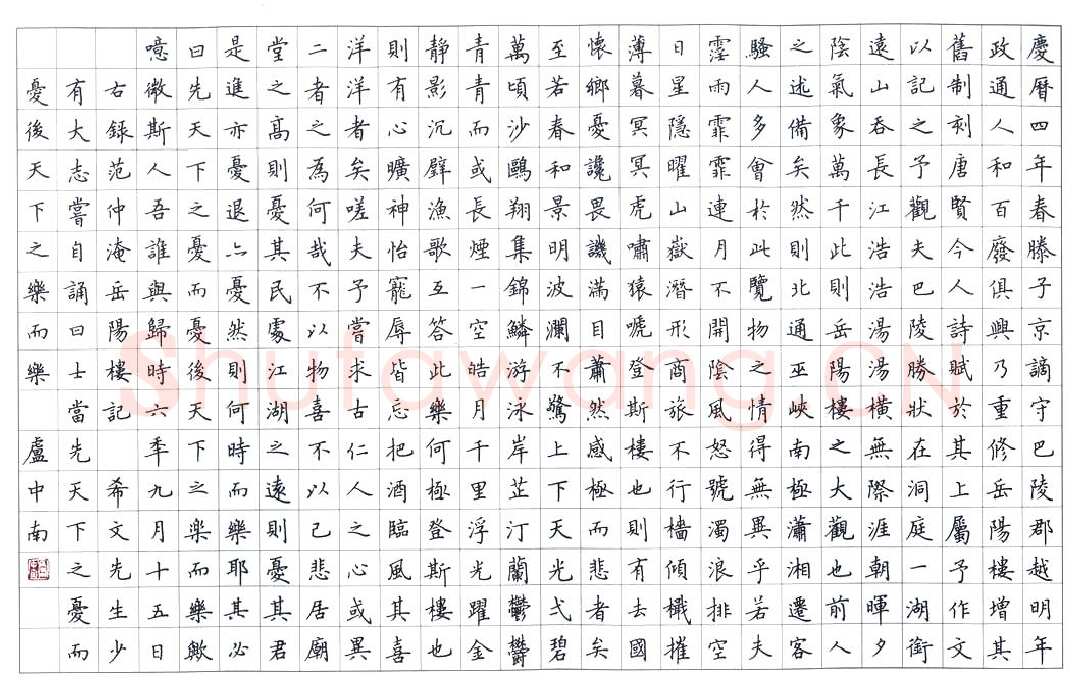 慶曆四年春滕子京謫守巴陵郡越明年
政通人和百廢俱興乃重修岳陽樓增其
舊制刻唐賢今人詩賦於其上屬予作文
以記之予觀夫巴陵勝狀在洞庭一湖銜
遠山吞長江浩浩湯湯橫無際涯朝暉夕
陰氣象萬千此則岳陽樓之大觀也前人
之述備矣然則北通巫峽南極瀟湘遷客
騷人多會於此覽物之情得無異乎若夫
霪雨霏霏連月不開陰風怒號濁浪排空
日星隱曜山嶽潛形商旅不行檣傾檝摧
薄暮冥冥虎嘯猿嗁登斯樓也則有去國
懷鄉憂讒畏譏滿目蕭然感極而悲者矣
至若春和景明波瀾不驚上下天光弌碧
萬頃沙鷗翔集錦鱗游泳岸芷汀蘭鬱鬱
青青而或長煙一空皓月千里浮光躍金
靜影沉璧漁歌互答此樂何極登斯樓也
則有心曠神怡寵辱皆忘把酒臨風其喜
洋洋者矣嗟夫予嘗求古仁人之心或異
二者之為何哉不以物喜不以己悲居廟
堂之高則憂其民處江湖之遠則憂其君
是進亦憂退亦憂然則何時而樂耶其必
曰先天下之憂而憂後天下之楽而樂歟
噫微斯人吾誰與歸時六秊九月十五日
右錄范仲淹岳陽樓記 希文先生少
有大志嘗自誦曰士當先天下之憂而
憂後天下之樂而樂 盧中南
Shufawang.CN